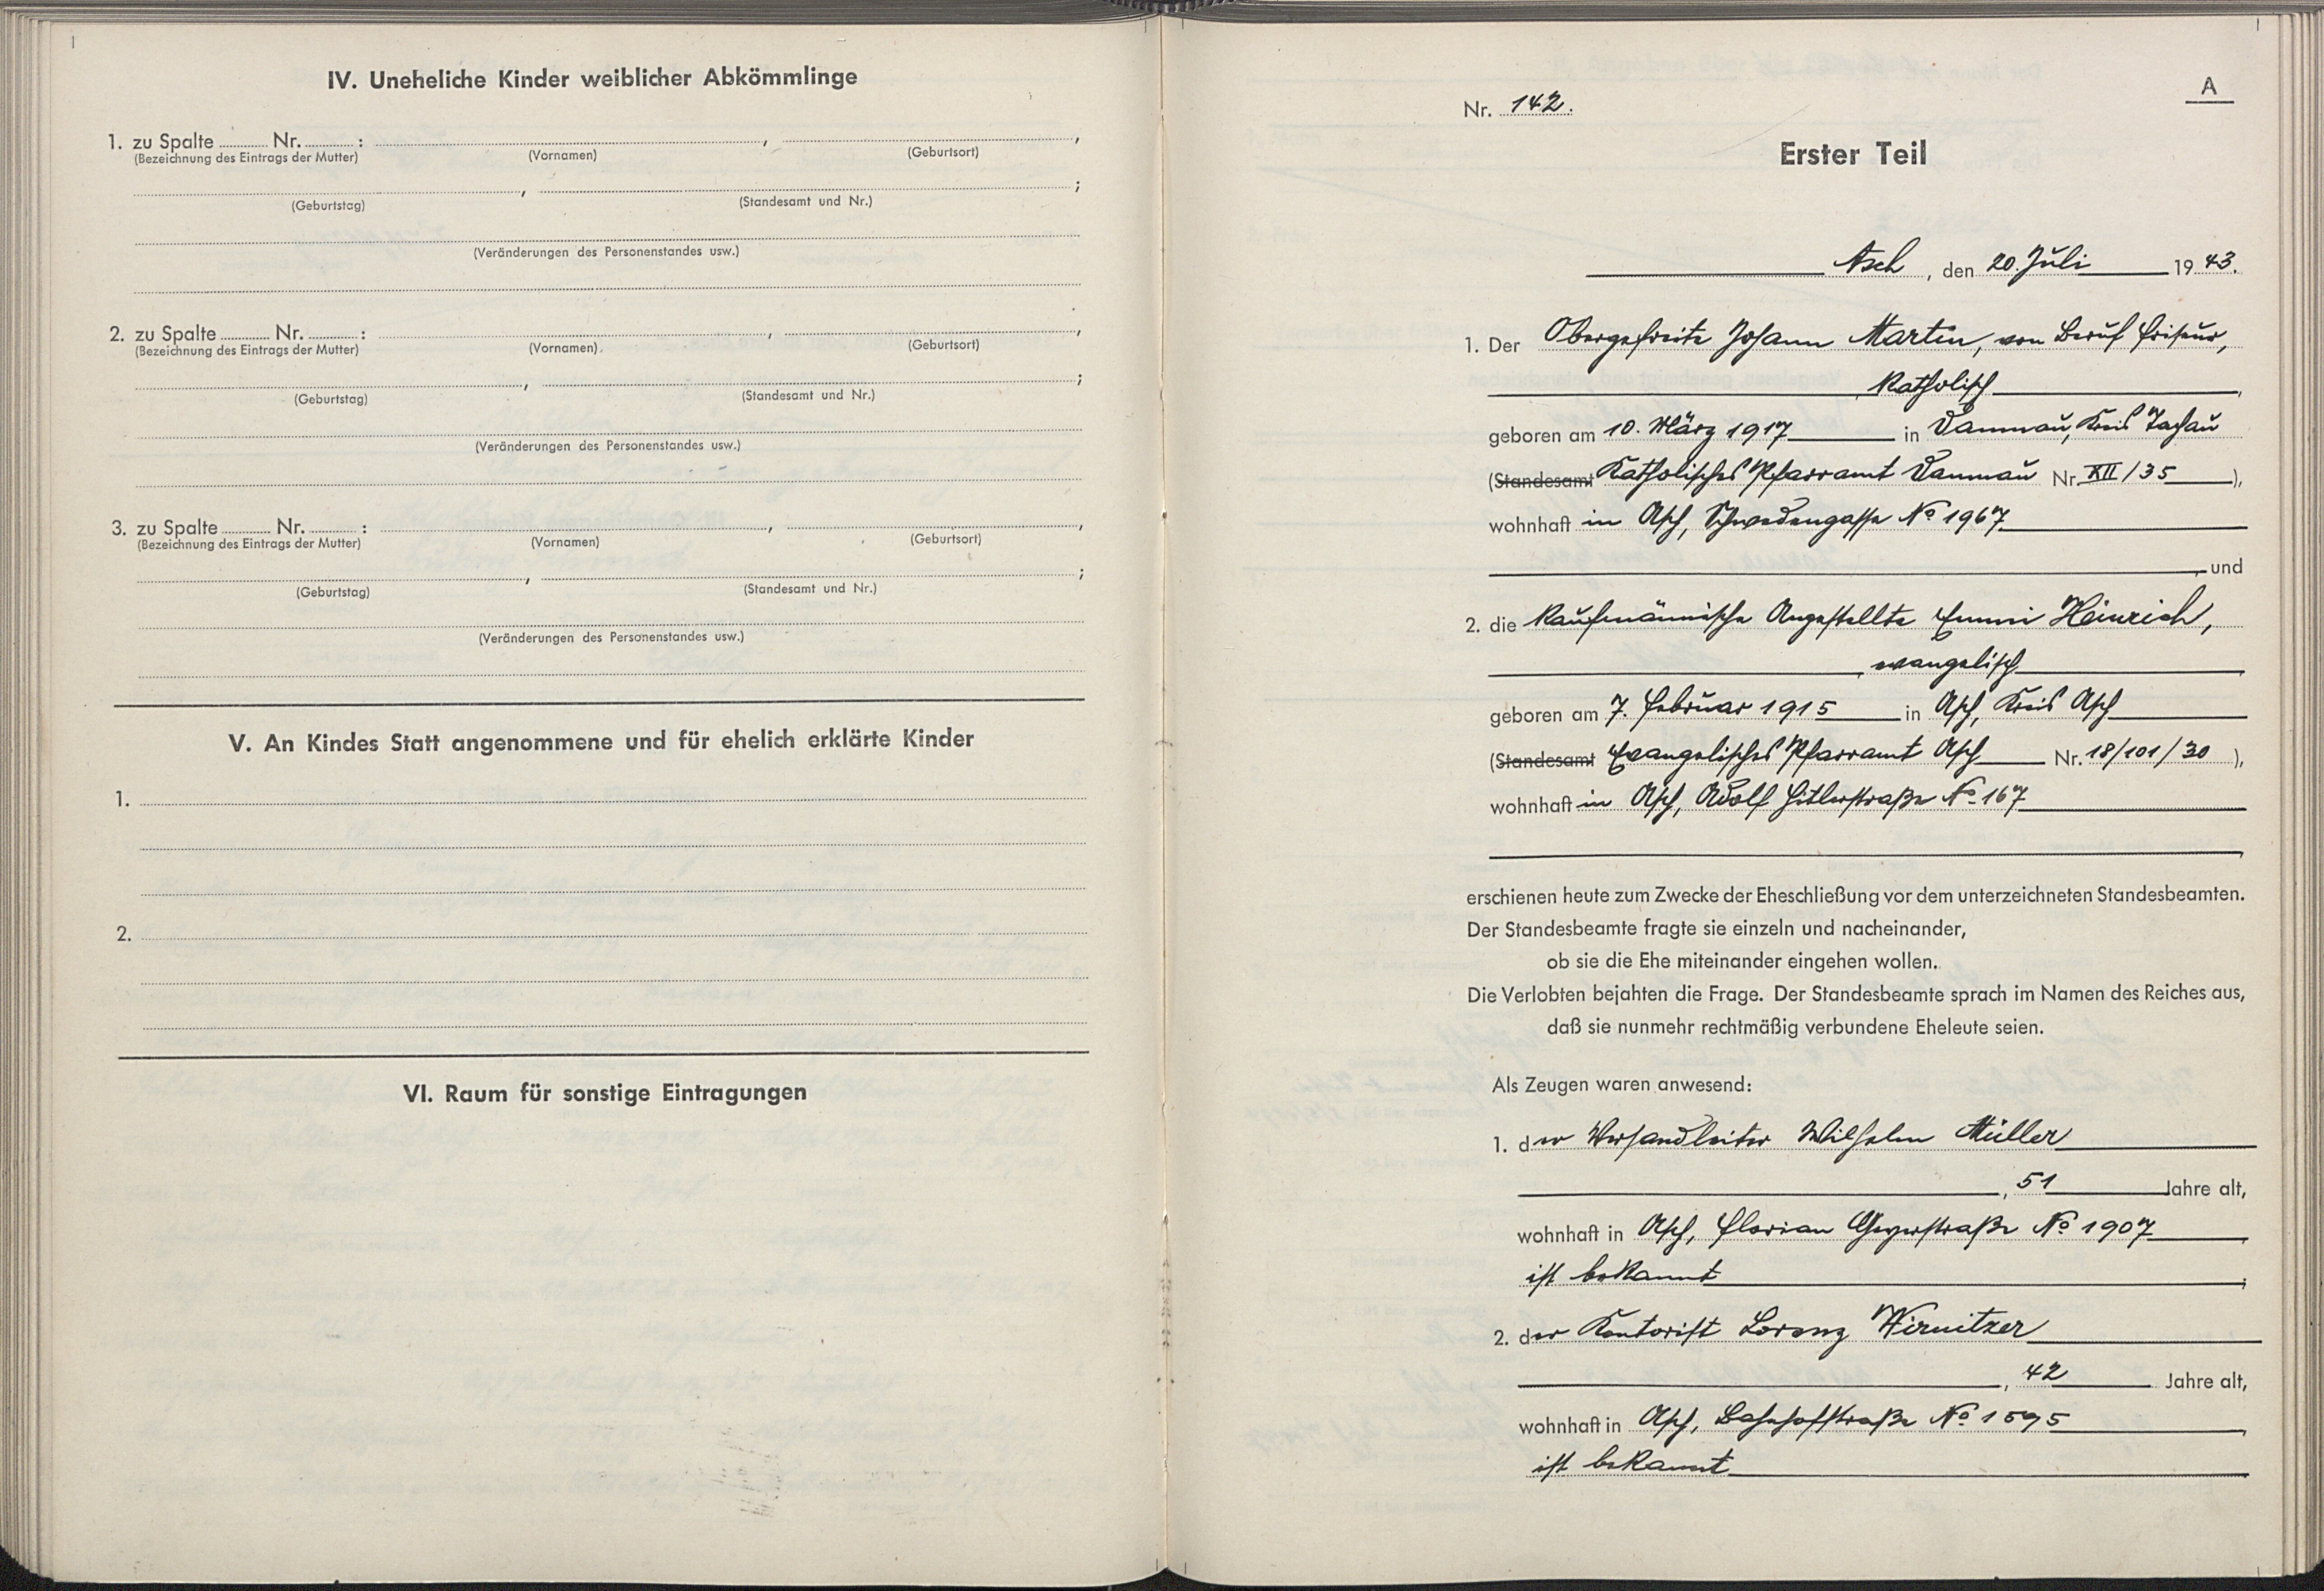 IV. Uneheliche Kinder weiblicher Abkömmlinge
1. zu Spalte ........ Nr. ........ : ........ , ........ ,
(Bezeichnung des Eintrags der Mutter) (Vornamen) (Geburtsort)
(Geburtstag) (Standesamt und Nr.)
(Veränderungen des Personenstandes usw.)
2. zu Spalte ........ Nr. ........ : ........ , ........ ,
(Bezeichnung des Eintrags der Mutter) (Vornamen) (Geburtsort)
(Geburtstag) (Standesamt und Nr.)
(Veränderungen des Personenstandes usw.)
3. zu Spalte ........ Nr. ........ : ........ , ........ ,
(Bezeichnung des Eintrags der Mutter) (Vornamen) (Geburtsort)
(Geburtstag) (Standesamt und Nr.)
(Veränderungen des Personenstandes usw.)
V. An Kindes Statt angenommene und für ehelich erklärte Kinder
1.
2.
VI. Raum für sonstige Eintragungen
A
Nr. 142.
Erster Teil
Asch, den 20. Juli 1943.
1. Der Obergefreite Johann Martin, von Beruf Friseur,
katholisch,
geboren am 10. März 1917 in Damnau, Kreis Tachau
(Standesamt Katholisches Pfarramt Damnau Nr. XII/35),
wohnhaft in Asch, Schwedengasse No 1967
, und
2. die kaufmännische Angestellte Emmi Heinrich,
, evangelisch,
geboren am 7. Februar 1915 in Asch, Kreis Asch
(Standesamt Evangelisches Pfarramt Asch Nr. 18/101/30),
wohnhaft in Asch, Adolf Hitlerstraße No 167
erschienen heute zum Zwecke der Eheschließung vor dem unterzeichneten Standesbeamten.
Der Standesbeamte fragte sie einzeln und nacheinander,
ob sie die Ehe miteinander eingehen wollen.
Die Verlobten bejahten die Frage. Der Standesbeamte sprach im Namen des Reiches aus,
daß sie nunmehr rechtmäßig verbundene Eheleute seien.
Als Zeugen waren anwesend:
1. der Versandleiter Wilhelm Müller
, 51 Jahre alt,
wohnhaft in Asch, Florian Geyerstraße No 1907,
ist bekannt;
2. der Kontorist Lorenz Wirnitzer
, 42 Jahre alt,
wohnhaft in Asch, Bahnhofstraße No 1595,
ist bekannt